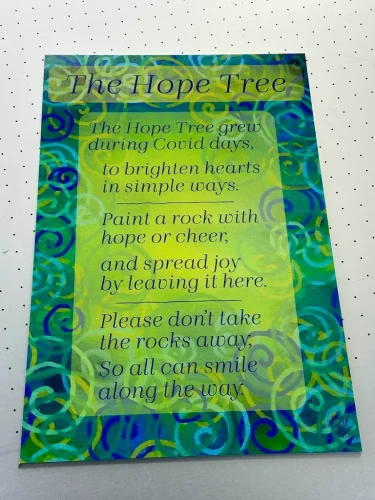 The Hope Tree
The Hope Tree grew
during Covid days,
to brighten hearts
in simple ways.
Paint a rock with
hope or cheer,
and spread joy
by leaving it here.
Please don't take
the rocks away,
So all can smile
along the way.